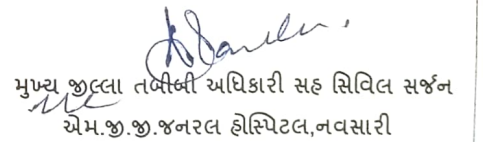 મુખ્ય જીલ્લા તબીબી અધિકારી સહ સિવિલ સર્જન
એમ.જી.જી.જનરલ હોસ્પિટલ,નવસારી